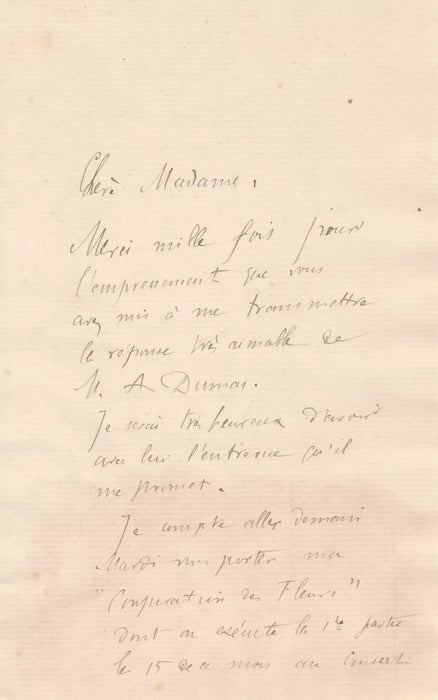 Chère Madame,
Merci mille fois pour
l'empressement que vous
avez mis à me transmettre
la réponse très aimable de
M. A Dumas.
Je serai très heureux d'avoir
avec lui l'entrevue qu'il
me promet.
Je compte aller demain
Mardi vous porter ma
"Conjuration des Fleurs"
dont on exécute la 1re partie
le 15 de ce mois au concert